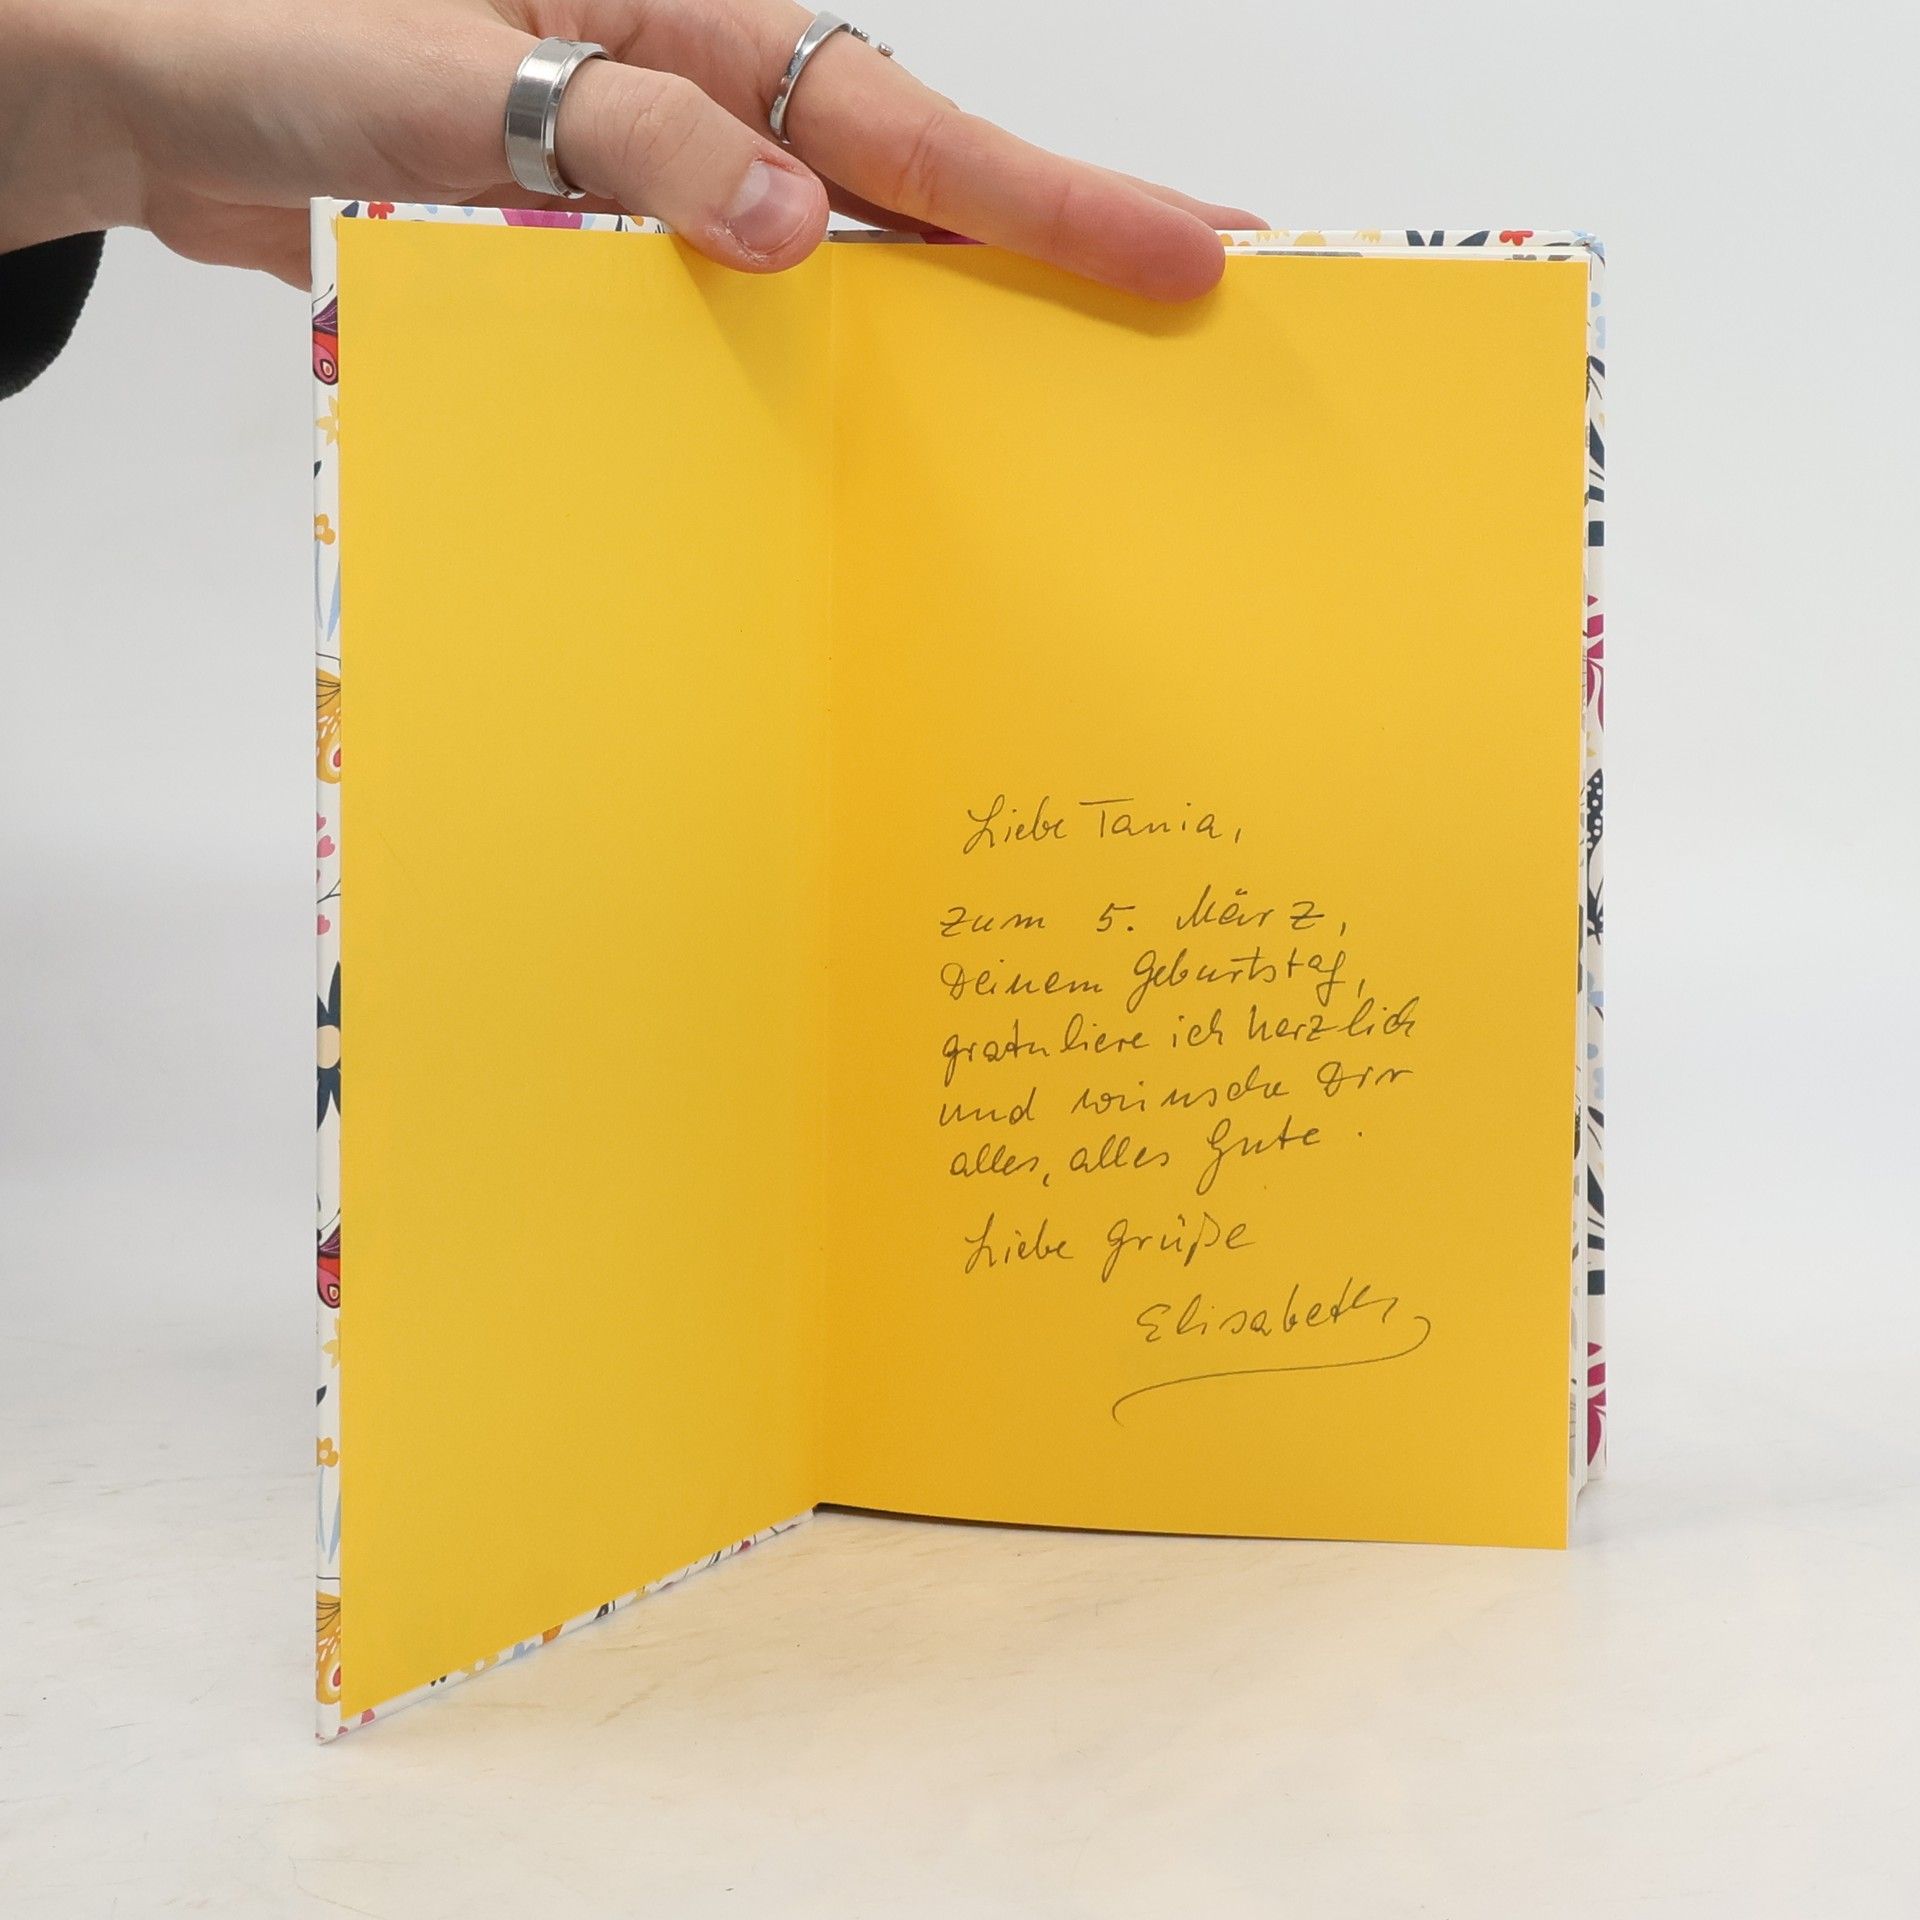 Liebe Tania,
zum 5. März,
Deinem Geburtstag,
gratuliere ich herzlich
und wünsche Dir
alles, alles Gute.
Liebe Grüße
Elisabeth